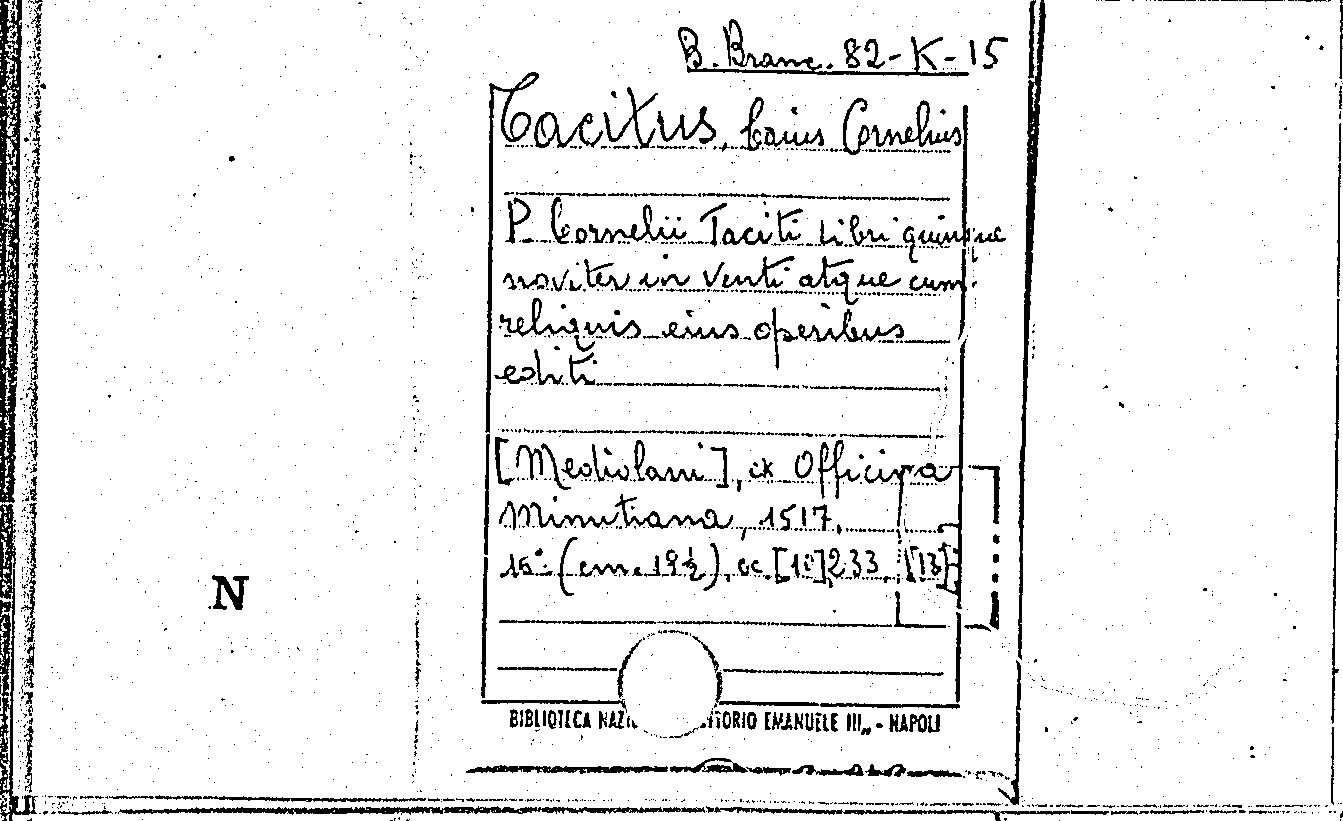 B. Branc. 82-K-15
Tacitus, Caius Cornelius
P. Cornelii Taciti Libri quinque
noviter in venti atque cum
reliquis eius operibus
editi
[Mediolani], ex Officina
Minutiana, 1517.
16° (cm. 19½), cc. [10] 233, [13]
N
BIBLIOTECA NAZI TORIO EMANUELE III„ - NAPOLI